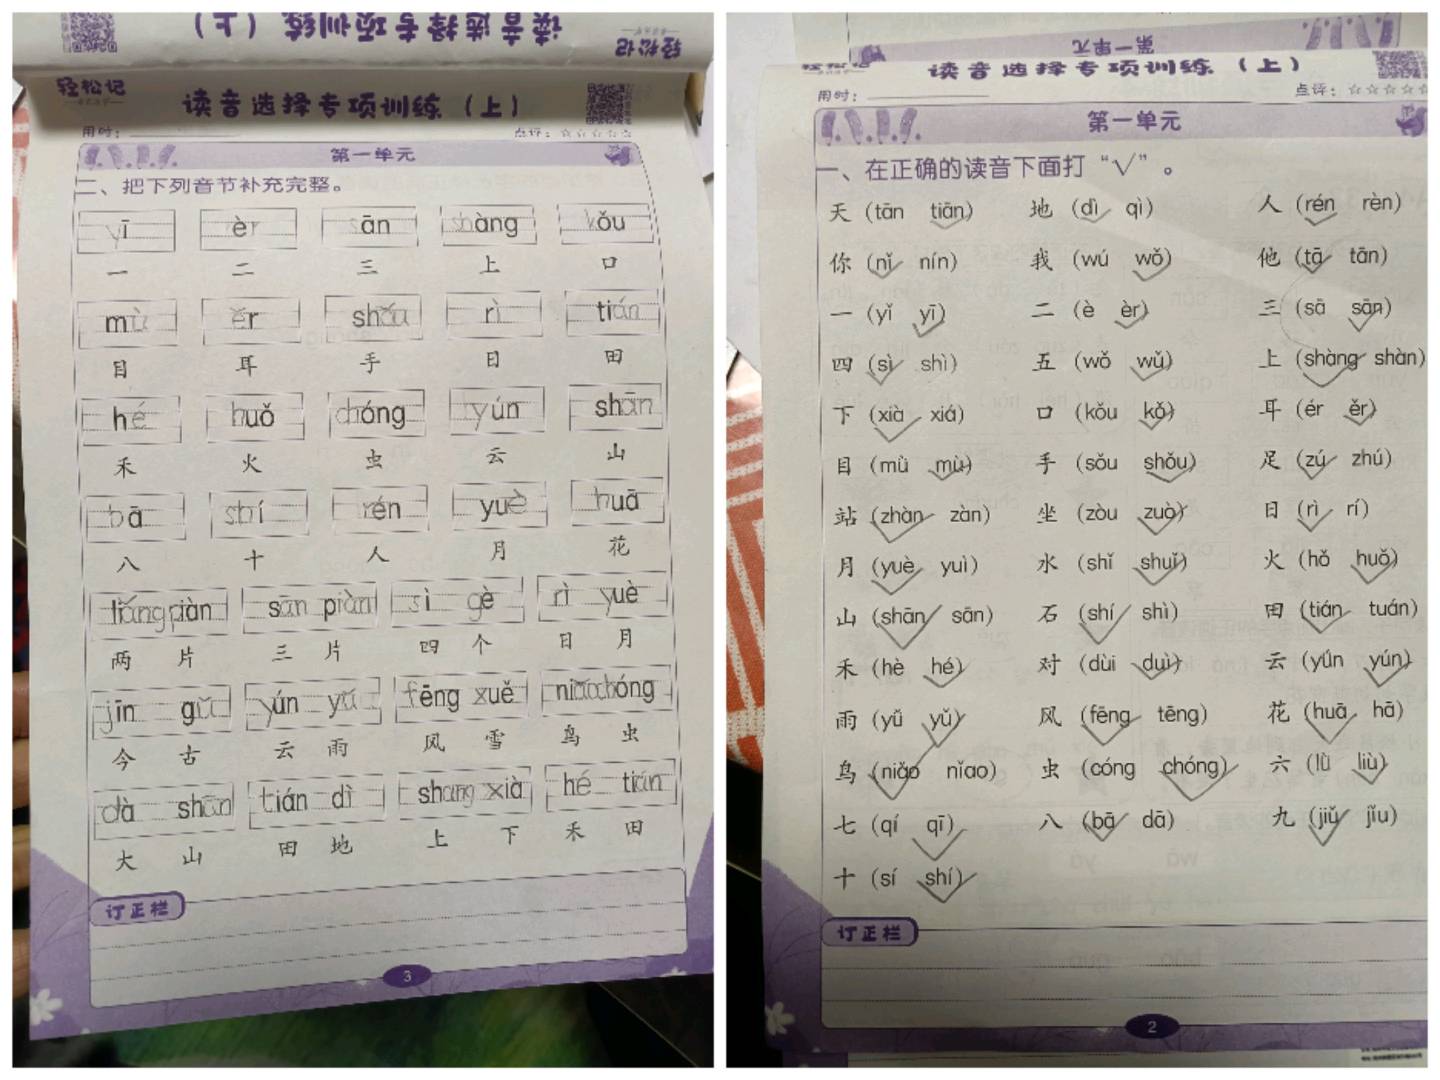 读音选择专项训练（上）
轻松记
轻松记
读音选择专项训练（上）
用时：
点评：☆☆☆☆☆
第一单元
二、把下列音节补充完整。
yī èr sān shàng kǒu
一 二 三 上 口
mù ěr shǒu rì tián
目 耳 手 日 田
hé huǒ chóng yún shān
禾 火 虫 云 山
bā shí rén yuè huā
八 十 人 月 花
liǎng piàn sān piàn sì gè rì yuè
两 片 三 片 四 个 日 月
jīn gǔ yún yǔ fēng xuě niǎo chóng
今 古 云 雨 风 雪 鸟 虫
dà shān tián dì shang xià hé tián
大 山 田 地 上 下 禾 田
订正栏
3
第一单元
读音选择专项训练（上）
用时：
点评：☆☆☆☆☆
第一单元
一、在正确的读音下面打“√”。
天（tān tiān） 地（dì qì） 人（rén rèn）
你（nǐ nín） 我（wú wǒ） 他（tā tān）
一（yǐ yī） 二（è èr） 三（sā sān）
四（sì shì） 五（wǒ wǔ） 上（shàng shàn）
下（xià xiá） 口（kǒu kǒ） 耳（ér ěr）
目（mù mù） 手（sǒu shǒu） 足（zú zhú）
站（zhàn zàn） 坐（zòu zuò） 日（rì rí）
月（yuè yuì） 水（shǐ shuǐ） 火（hǒ huǒ）
山（shān sān） 石（shí shì） 田（tián tuán）
禾（hè hé） 对（dùi duì） 云（yǘn yún）
雨（yǚ yǔ） 风（fēng tēng） 花（huā hā）
鸟（niǎo nǐao） 虫（cóng chóng） 六（lù liù）
七（qí qī） 八（bā dā） 九（jiǔ jǐu）
十（sí shí）
订正栏
2